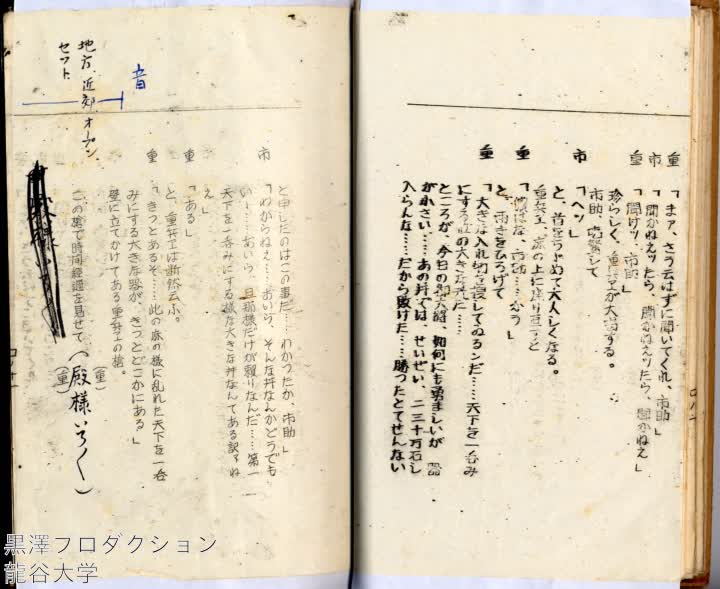 重
「まァ、さう云はずに聞いてくれ、市助」
市
「聞かねえッたら、聞かねえッたら、聞かねえ」
重
「聞けッ、市助」
珍らしく、重兵エが大喝する。
市助、吃驚して
市
「ヘッ」
と、首をちぢめて大人しくなる。
重兵エ、床の上に座り直すと
重
「市助
と、両手をひろげて
重
「大きな入れ物を探してゐるンだ……天下を一呑み
にする位の大きな丼だ……
ところが、今日の御大将、如何にも勇ましいが 器
が小さい……あの丼では、せいぜい、二三十万石し
入らんな……だから敗けた……勝つたとてせんない
と申したのはこの事だ……わかつたか、市助」
市
「わからねえ……おいら、そんな丼なんかどうでも
いゝ……おいら、旦那様だけが頼りなんだ……第一
天下を一呑みにする様な大きな丼なんてある訳やね
え」
重
「ある」
と、重兵エは断然云ふ。
重
「きつとあるぞ……此の麻の様に乱れた天下を一呑
みにする大きな器が、きつとどこかにある」
壁に立てかけてある重兵エの槍。
この槍で時間経過を見せて
(重)
(殿様いろく)
(重)
音
地方、近郊オープン
セット
黒澤プロダクション
龍谷大学